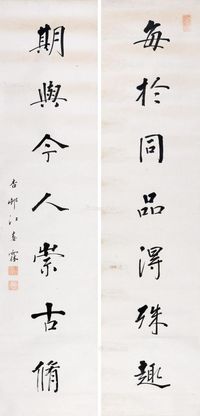 每於同品得殊趣
期與今人崇古脩
杏邨江春霖